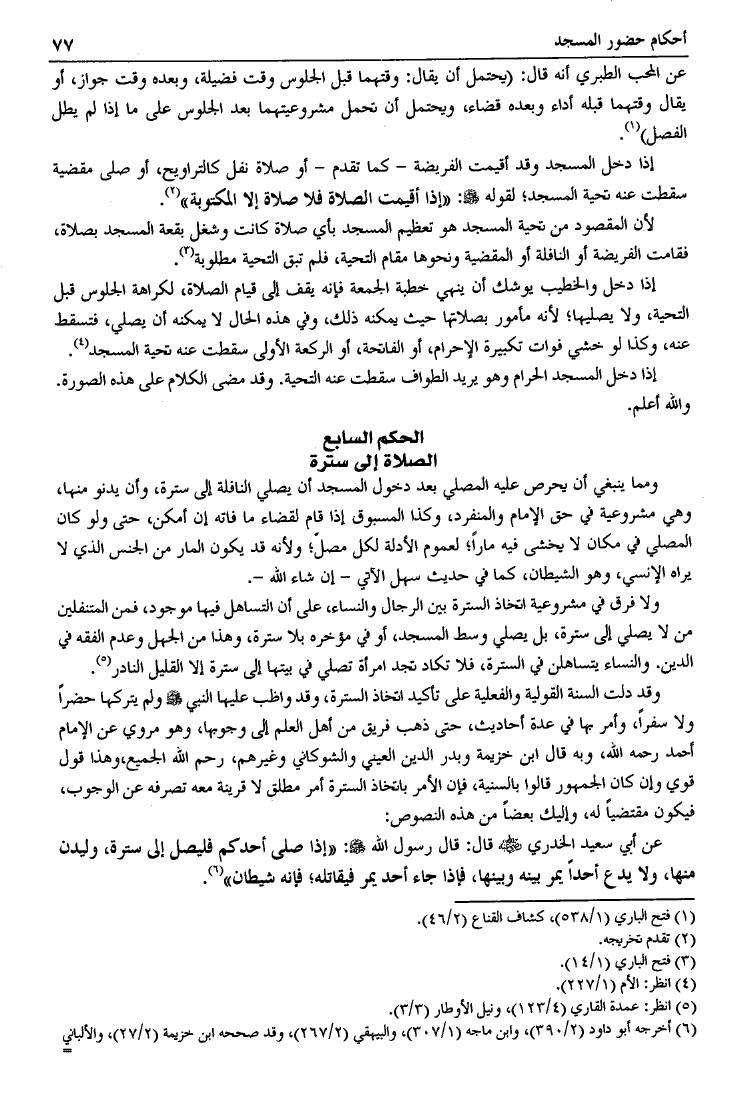 أحكام حضور المسجد ٧٧
عن المحب الطبري أنه قال: (يحتمل أن يقال: وقتهما قبل الجلوس وقت فضيلة، وبعده وقت جواز، أو
يقال وقتهما قبله أداء وبعده قضاء، ويحتمل أن تحمل مشروعيتهما بعد الجلوس على ما إذا لم يطل
الفصل)(١).
إذا دخل المسجد وقد أقيمت الفريضة – كما تقدم – أو صلاة نفل كالتراويح، أو صلى مقضية
سقطت عنه تحية المسجد؛ لقوله ﷺ: «إذا أقيمت الصلاة فلا صلاة إلا المكتوبة»(٢).
لأن المقصود من تحية المسجد هو تعظيم المسجد بأي صلاة كانت وشغل بقعة المسجد بصلاة،
فقامت الفريضة أو النافلة أو المقضية ونحوها مقام التحية، فلم تبق التحية مطلوبة(٣).
إذا دخل والخطيب يوشك أن ينهي خطبة الجمعة فإنه يقف إلى قيام الصلاة، لكراهة الجلوس قبل
التحية، ولا يصليها؛ لأنه مأمور بصلاتها حيث يمكنه ذلك، وفي هذه الحال لا يمكنه أن يصلي، فتسقط
عنه، وكذا لو خشي فوات تكبيرة الإحرام، أو الفاتحة، أو الركعة الأولى سقطت عنه تحية المسجد(٤).
إذا دخل المسجد الحرام وهو يريد الطواف سقطت عنه التحية. وقد مضى الكلام على هذه الصورة.
والله أعلم.
الحكم السابع
الصلاة إلى سترة
ومما ينبغي أن يحرص عليه المصلي بعد دخول المسجد أن يصلي النافلة إلى سترة، وأن يدنو منها،
وهي مشروعية في حق الإمام والمنفرد، وكذا المسبوق إذا قام لقضاء ما فاته إن أمكن، حتى ولو كان
المصلي في مكان لا يخشى فيه ماراً؛ لعموم الأدلة لكل مصلّ؛ ولأنه قد يكون المار من الجنس الذي لا
يراه الإنسي، وهو الشيطان، كما في حديث سهل الآتي – إن شاء الله –.
ولا فرق في مشروعية اتخاذ السترة بين الرجال والنساء، على أن التساهل فيها موجود، فمن المتنفلين
من لا يصلي إلى سترة، بل يصلي وسط المسجد، أو في مؤخره بلا سترة، وهذا من الجهل وعدم الفقه في
الدين. والنساء يتساهلن في السترة، فلا تكاد تجد امرأة تصلي في بيتها إلى سترة إلا القليل النادر(٥).
وقد دلت السنة القولية والفعلية على تأكيد اتخاذ السترة، وقد واظب عليها النبي ﷺ ولم يتركها حضراً
ولا سفراً، وأمر بها في عدة أحاديث، حتى ذهب فريق من أهل العلم إلى وجوبها، وهو مروي عن الإمام
أحمد رحمه الله، وبه قال ابن خزيمة وبدر الدين العيني والشوكاني وغيرهم، رحم الله الجميع،وهذا قول
قوي وإن كان الجمهور قالوا بالسنية، فإن الأمر باتخاذ السترة أمر مطلق لا قرينة معه تصرفه عن الوجوب،
فيكون مقتضياً له، وإليك بعضاً من هذه النصوص:
عن أبي سعيد الخدري ﵁ قال: قال رسول الله ﷺ: «إذا صلى أحدكم فليصل إلى سترة، وليدن
منها، ولا يدع أحداً يمر بينه وبينها، فإذا جاء أحد يمر فيقاتله؛ فإنه شيطان»(٦).
(١) فتح الباري (٥٣٨/١)، كشاف القناع (٤٦/٢).
(٢) تقدم تخريجه.
(٣) فتح الباري (١٤/١).
(٤) انظر: الأم (٢٢٧/١).
(٥) انظر: عمدة القاري (١٢٣/٤)، ونيل الأوطار (٣/٣).
(٦) أخرجه أبو داود (٣٩٠/٢)، وابن ماجه (٣٠٧/١)، والبيهقي (٢٦٧/٢)، وقد صححه ابن خزيمة (٢٧/٢)، والألباني
=